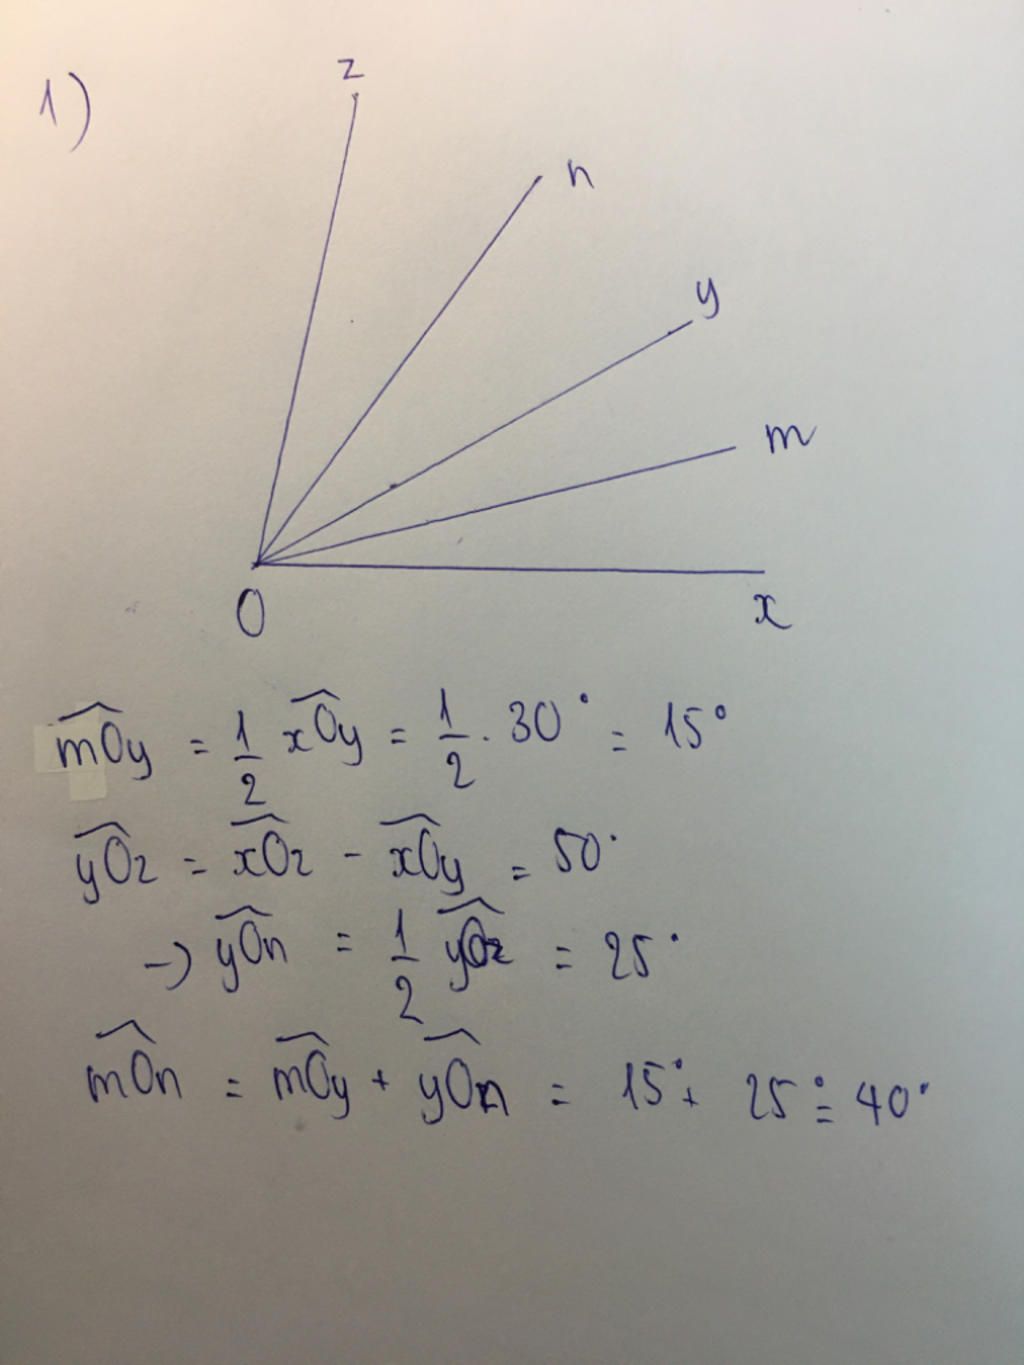 1)
z
n
y
m
O
x
m̂Oy = 1/2 x̂Oy = 1/2 . 30° = 15°
ŷOz = x̂Oz - x̂Oy = 50°
→ ŷOn = 1/2 ŷOz = 25°
m̂On = m̂Oy + ŷOn = 15° + 25° = 40°